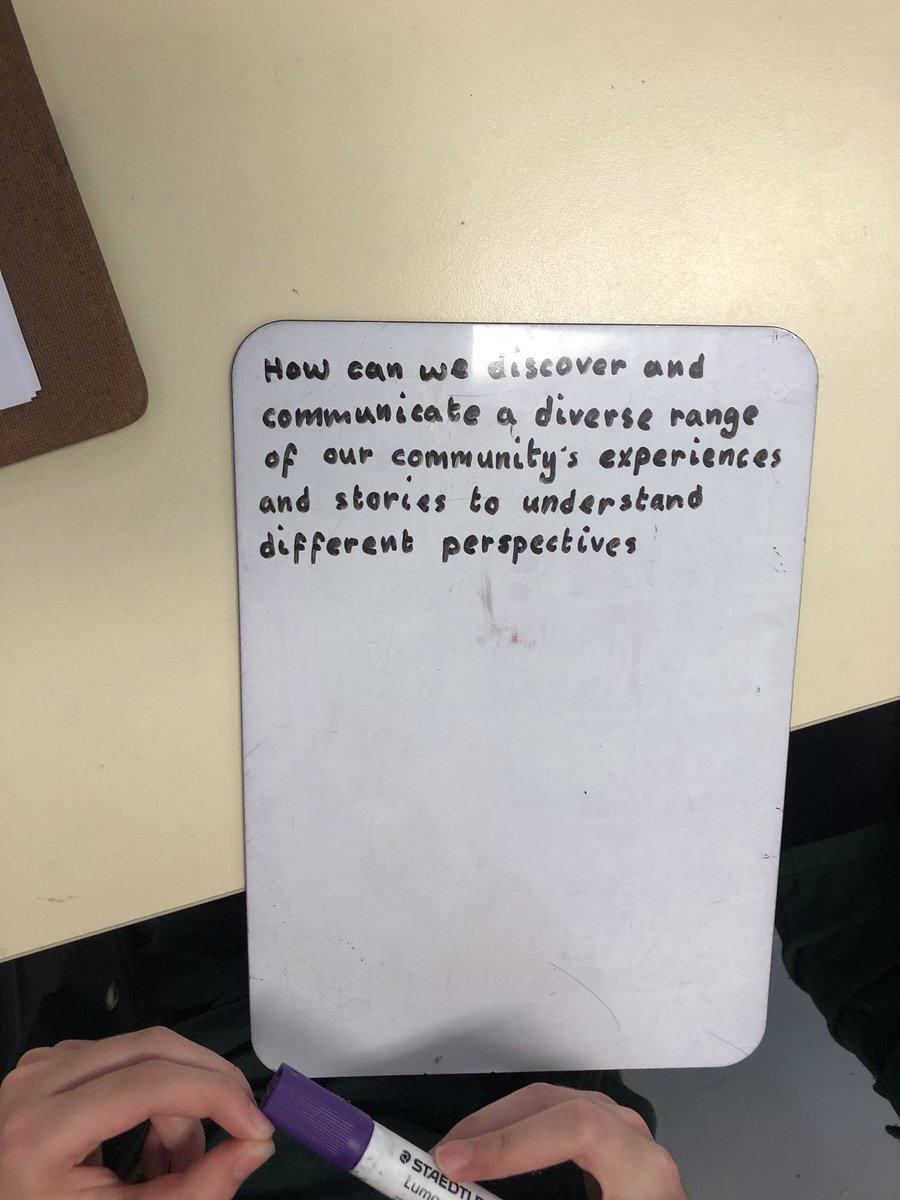 How can we discover and
communicate a diverse range
of our community's experiences
and stories to understand
different perspectives
STAEDTLER
Lumo